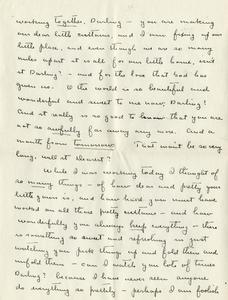 working together, Darling – you are making
our dear little curtains, and I am fixing up our
little place, and even though we are so many
miles apart it is all for our little home, isn't
it Darling? – and for the love that God has
given us. O the world is so beautiful and
wonderful and sweet to me now, Darling!
And it really is so good to know that you are
not so awfully far away any more. And a
month from tomorrow. That won't be so very
long, will it dearest?
While I was working today I thought of
so many things – of how dear and pretty your
little gown is, and how hard you must have
worked on all those pretty curtains – and how
wonderfully you always keep everything – there
is something so sweet and refreshing in just
watching you pick things up and fold them and
unfold them – can I watch you lots of times
Darling? Because I have never seen anyone
do everything so prettily – perhaps I am foolish